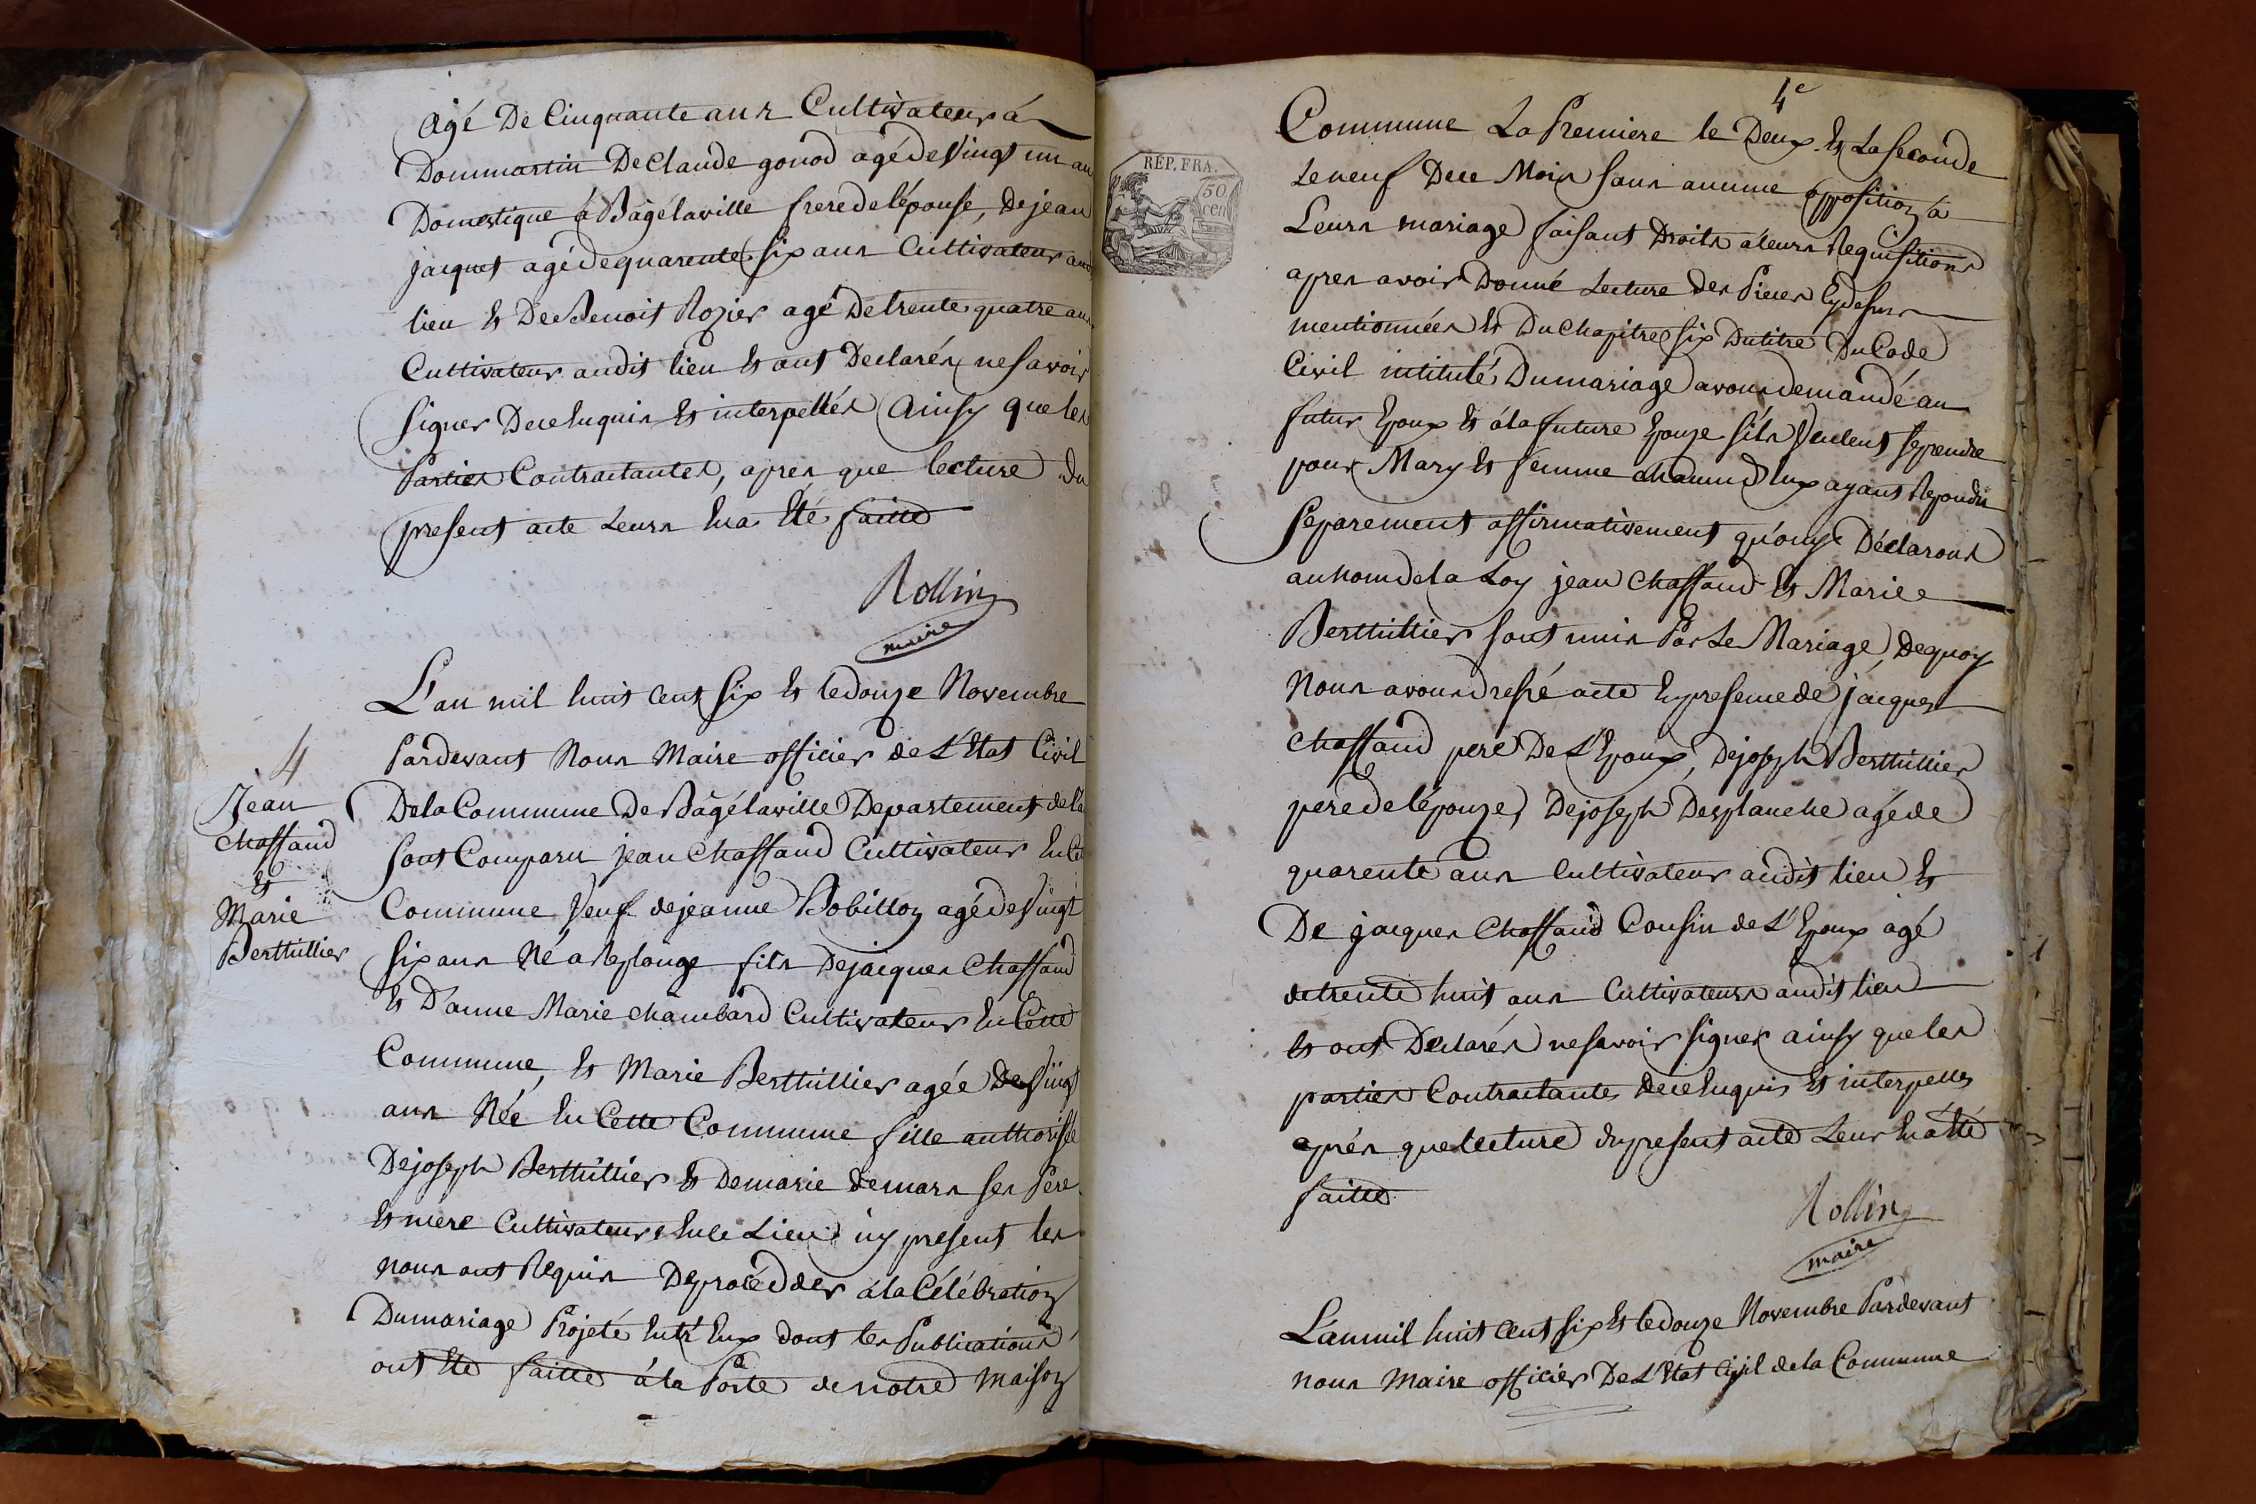 agé De Cinquante ans Cultivateur á
Dommartin De Claude gonod agé de Vingt un an
Domestique á Bâgélaville frere de lépouse, De jean
jacquet agé de quarente six ans Cultivateur au
lieu et De Benoit Rozier agé De trente quatre ans
Cultivateur audit lieu et ont Declarés ne savoir
signer De ce Enquis et interpellés Ainsy que les
Parties Contractantes, apres que lecture du
present acte Leurs En a Eté faitte
Rollin
maire
L'an mil huit cent six et le douze Novembre
Pardevant Nous Maire officier de L'Etat Civil
De la Commune De Bâgélaville Departement de L'a
sont Comparu jean Chaffaud Cultivateur En Ce
Commune Veuf de jeanne Bobillon agé de Vingt
six ans Né a Replonge fils De jacques Chaffaud
et D'anne Marie chambard Cultivateur En Cette
Commune, et Marie Berthillier agée De Vingt
ans Née En Cette Commune fille authorisée
De joseph Berthillier et De marie demars ses Pere
et mere Cultivateurs En Ce Lieu icy present les
nous ont Requis De procédder á la Célébration
Du mariage Projeté Entr'Eux dont les Publications
ont Eté faitte á la Porte de notre Maison
4
Jean
Chaffaud
et
Marie
Berthillier
4e
RÉP. FRA.
50
cen
Commune La Premiere le Deux et La seconde
Le neuf De ce Mois sans aucune opposition á
Leurs mariage faisant Droits á leurs Requisitions
apres avoir Donné Lecture des Pieces Cydessus
mentionnées et Du Chapitre six Du titre Du Code
Civil intitulé Du mariage avons demandé au
futur Epoux et á la future Epouze sils Veulent seprendre
pour Mary et femme chacun d'Eux ayant Repondu
separement affirmativement qu'ouy Déclarons
au nom de la Loy jean Chaffaud et Marie
Berthillier sont unis Par Le Mariage, De quoy
Nous avons dressé acte En presence de jacques
Chaffaud pere De L'Epoux, De joseph Berthillier
pere de lépouze, De joseph Desplanche agé de
quarente ans Cultivateur audit lieu et
De jacques Chaffaud Cousin de L'Epoux agé
de trente huit ans Cultivateurs audit lieu
et ont Déclarés ne savoir signer ainsy que les
parties Contractantes de ce Enquis et interpellés
aprés que lecture du present acte Leur En a Eté
faitte
Rollin
maire
L'an mil huit Cent six et le douze Novembre Pardevant
nous Maire officier De L'Etat Civil de la Commune